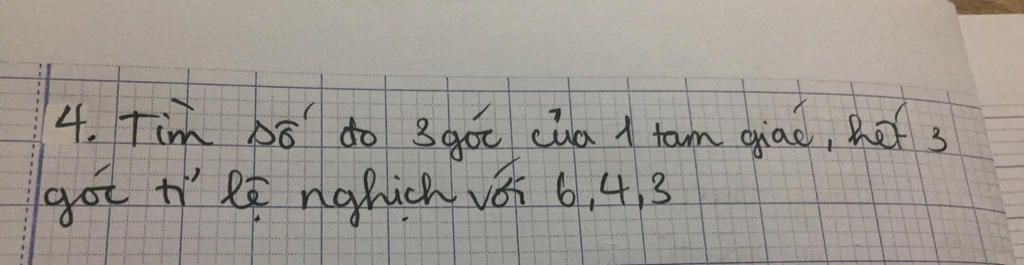 4. Tìm số đo 3 góc của 1 tam giác, biết 3
góc tỉ lệ nghịch với 6, 4, 3